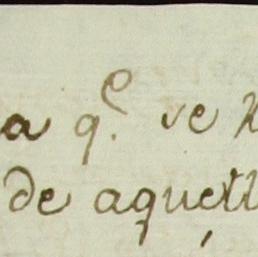 a q.e se
de aquell